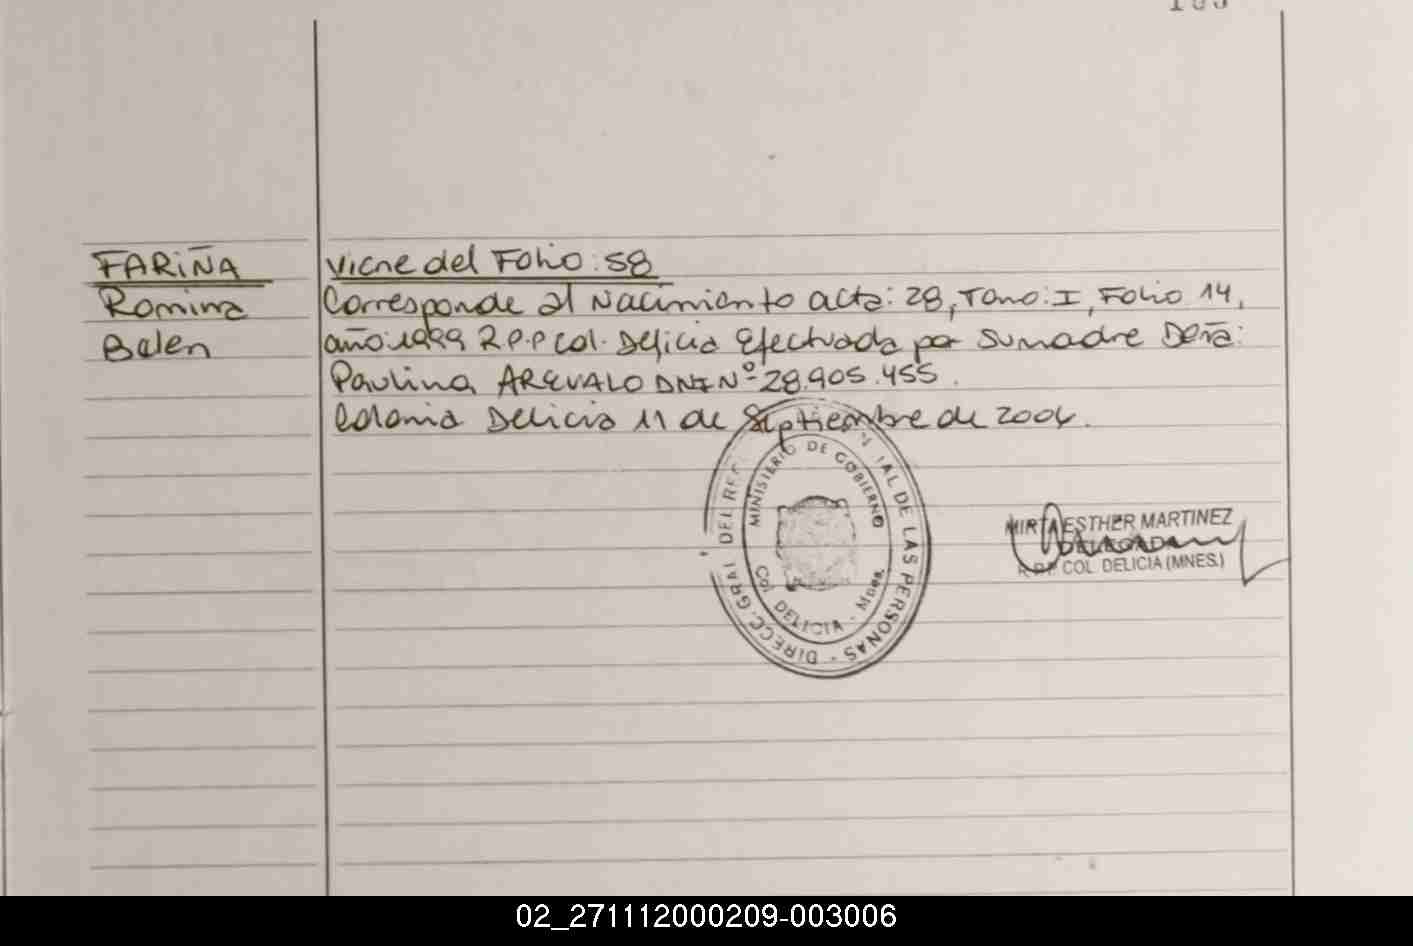 FARIÑA
Romina
Belen
Viene del Folio: 58
Corresponde al Nacimiento acta: 28, Tomo: I, Folio 14,
año: 1999 R.P.P Col. Delicia Efectuada por su madre Doña:
Paulina AREVALO DNI Nº 28.905.455.
Colonia Delicia 11 de Septiembre de 2004.
DIRECC. GRAL DEL REG IAL DE LAS PERSONAS
MINISTERIO DE GOBIERNO
Col. DELICIA - Mnes.
MIRTA ESTHER MARTINEZ
DELEGADA
R.P.P. COL. DELICIA (MNES.)
02_271112000209-003006